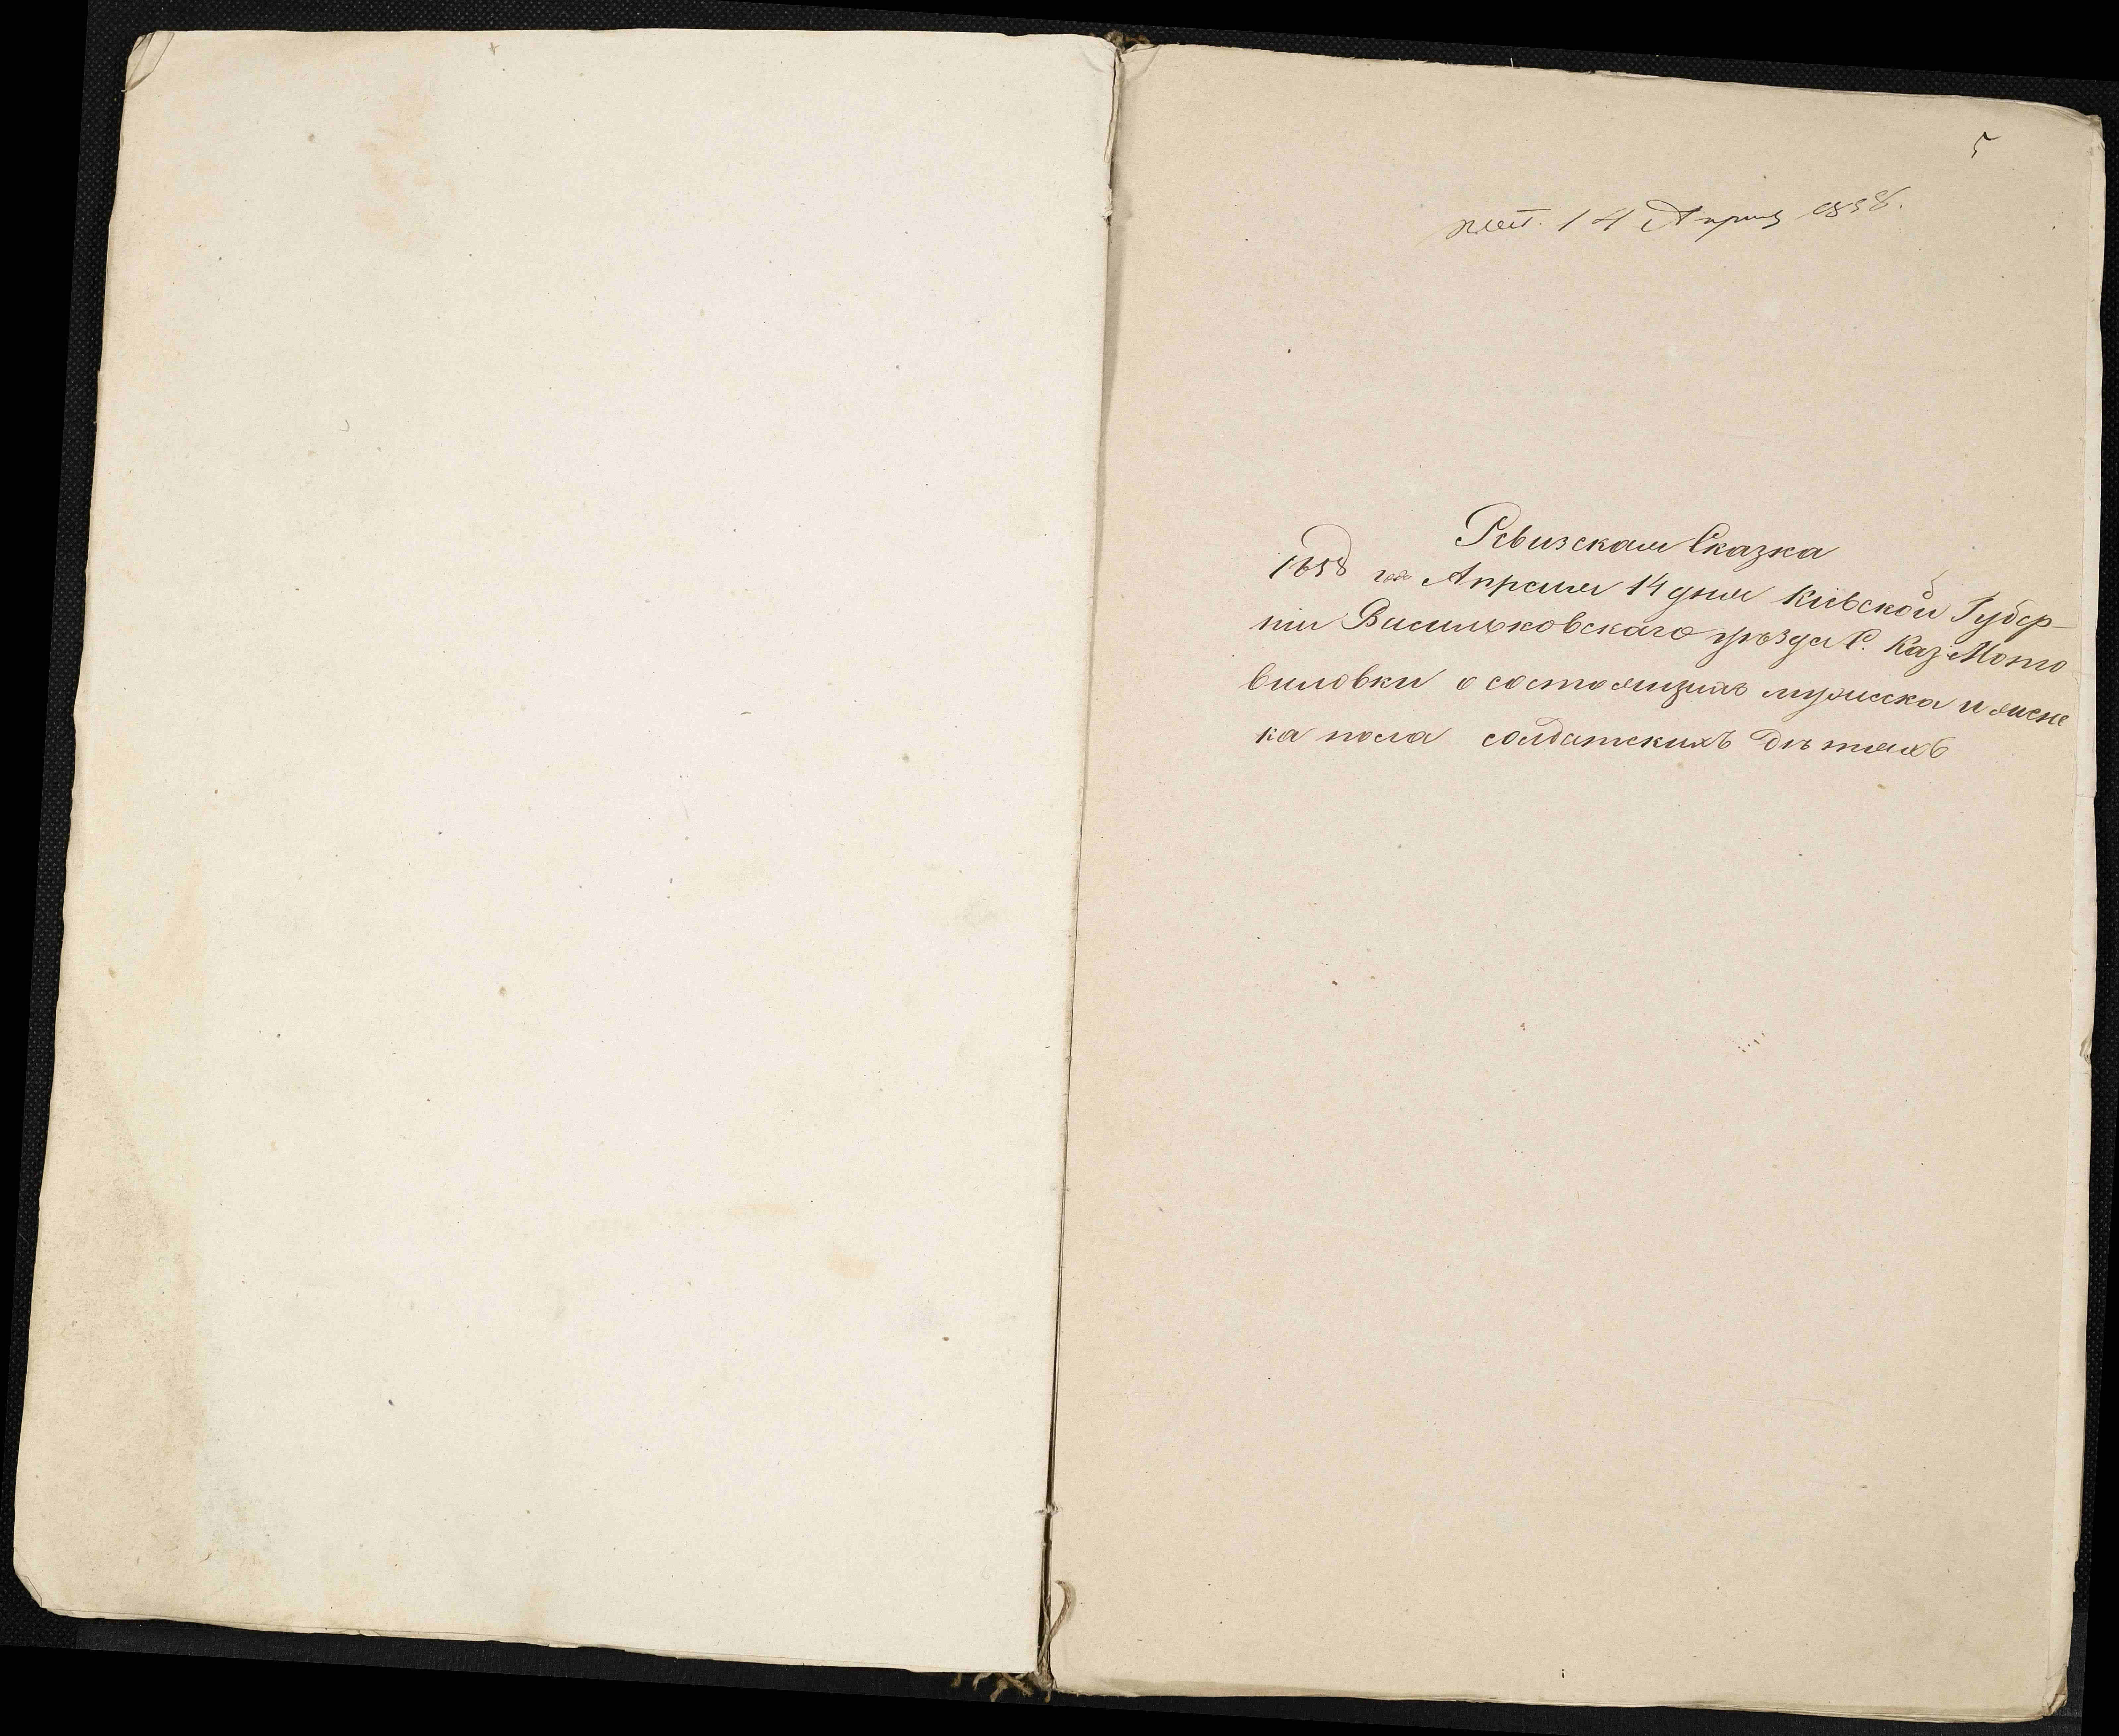 5
14 Апрѣля 1858.
Ревизская Сказка
1858 года Апреля 14 дня Кіевской Губер-
ніи Васильковскаго уѣзда С. Каз. Мото
виловки о состоящихъ мужеска и жене
ка пола солдатскихъ дѣтяхъ